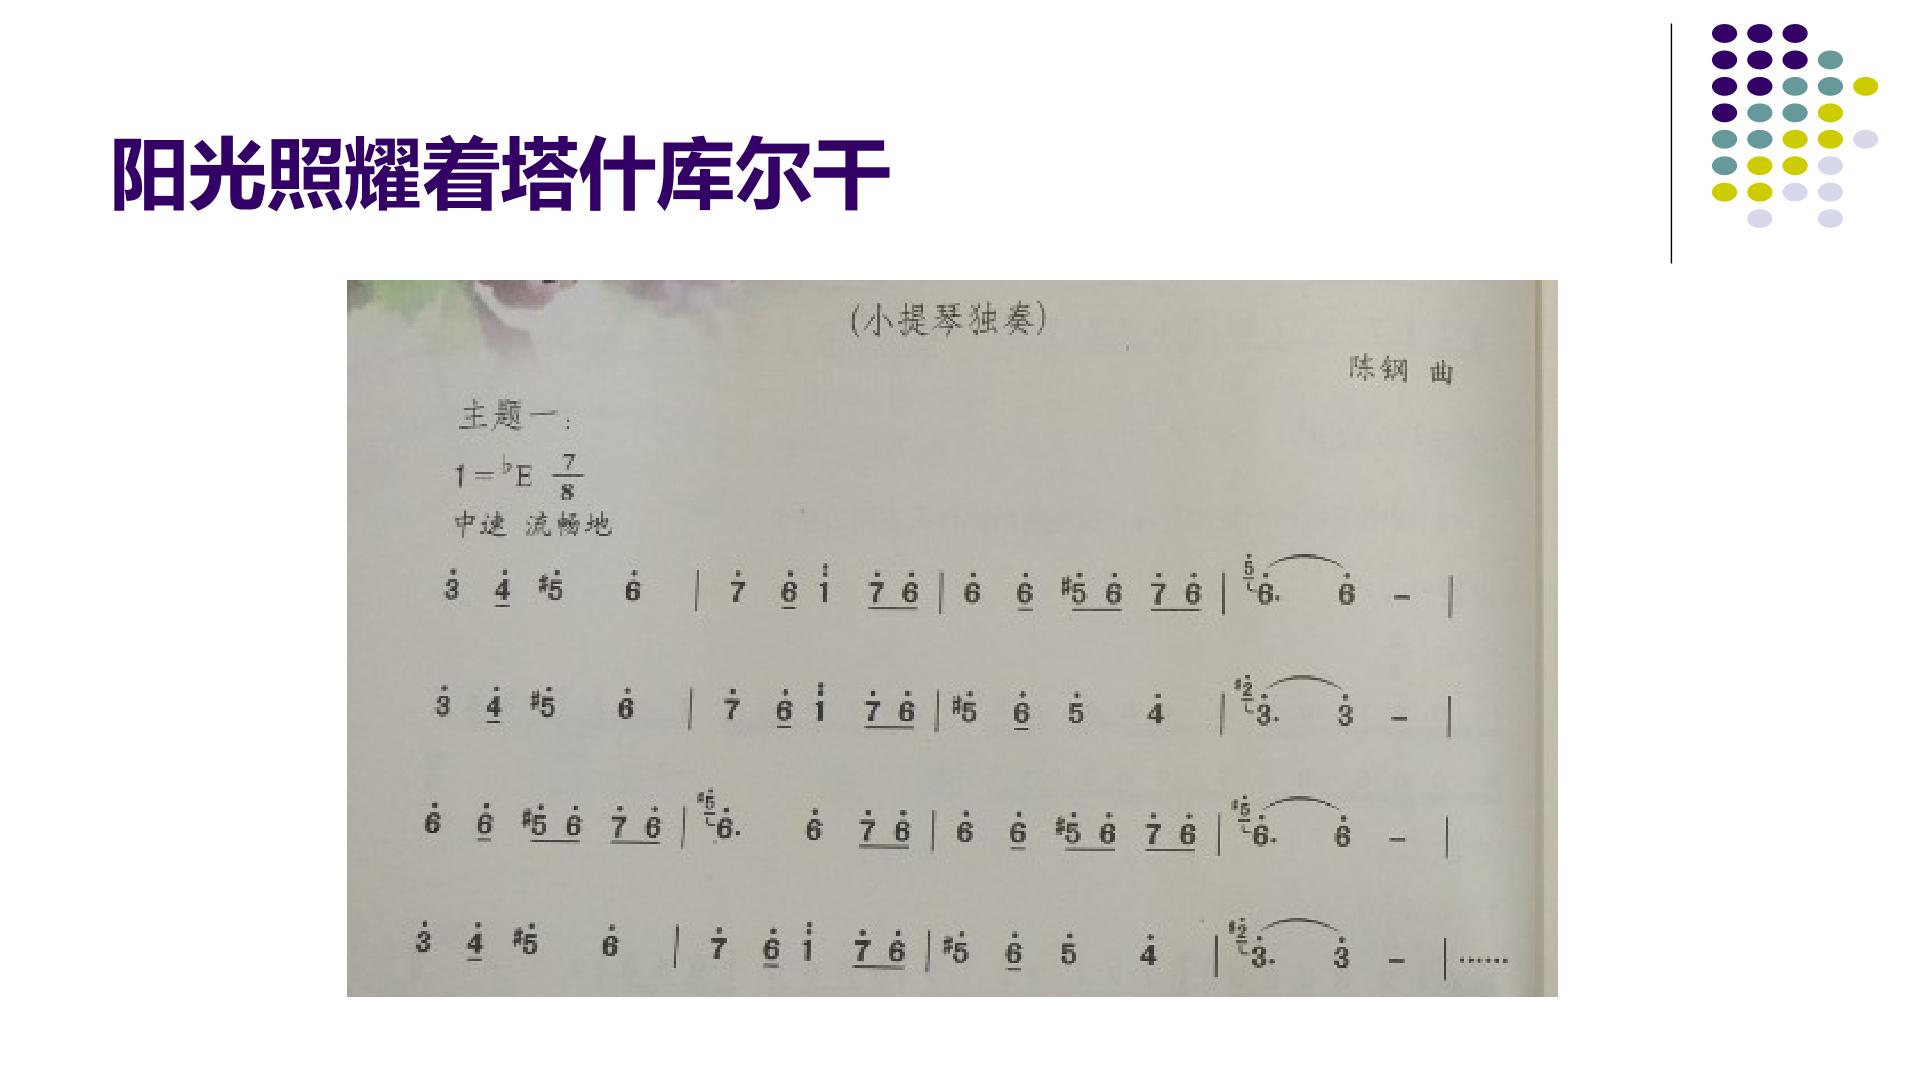 阳光照耀着塔什库尔干
(小提琴独奏)
陈钢 曲
主题一:
1=♭E 7/8
中速 流畅地
3̇ 4̲̇ #5̇ 6̇ | 7̇ 6̲̇ 1̈ 7̲̇ 6̲̇ | 6̇ 6̲̇ #5̲̇ 6̲̇ 7̲̇ 6̲̇ | 5̇ 6̇. 6̇ – |
3̇ 4̲̇ #5̇ 6̇ | 7̇ 6̲̇ 1̈ 7̲̇ 6̲̇ | #5̇ 6̲̇ 5̇ 4̇ | #2̇ 3̇. 3̇ – |
6̇ 6̲̇ #5̲̇ 6̲̇ 7̲̇ 6̲̇ | #5̇ 6̇. 6̇ 7̲̇ 6̲̇ | 6̇ 6̲̇ #5̲̇ 6̲̇ 7̲̇ 6̲̇ | #5̇ 6̇. 6̇ – |
3̇ 4̲̇ #5̇ 6̇ | 7̇ 6̲̇ 1̈ 7̲̇ 6̲̇ | #5̇ 6̲̇ 5̇ 4̇ | #2̇ 3̇. 3̇ – | ……